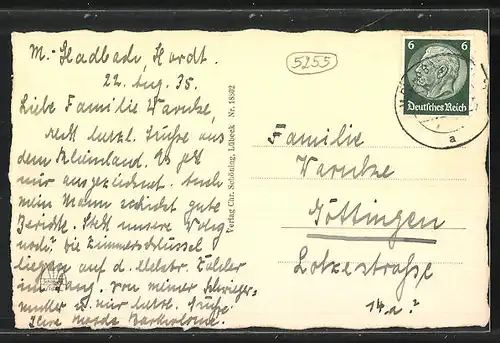 M.-Gladbach, Hardt.
22. Aug. 35.
Liebe Familie Warnke,
recht herzl. Grüße aus
dem Rheinland. Es geht
mir ausgezeichnet. Auch
mein Mann schickt gute
Berichte. Steht unsere Wohng
noch? Die Zimmerschlüssel
liegen auf d. elektr. Zähler
im Gang. Von meiner Schwieger-
mutter u. mir herzl. Grüße.
Ihre
5255
Verlag Chr. Schöning, Lübeck Nr. 18802
6 6
Deutsches Reich
a
Familie
Warnke
Göttingen
Lotzestraße
14a?